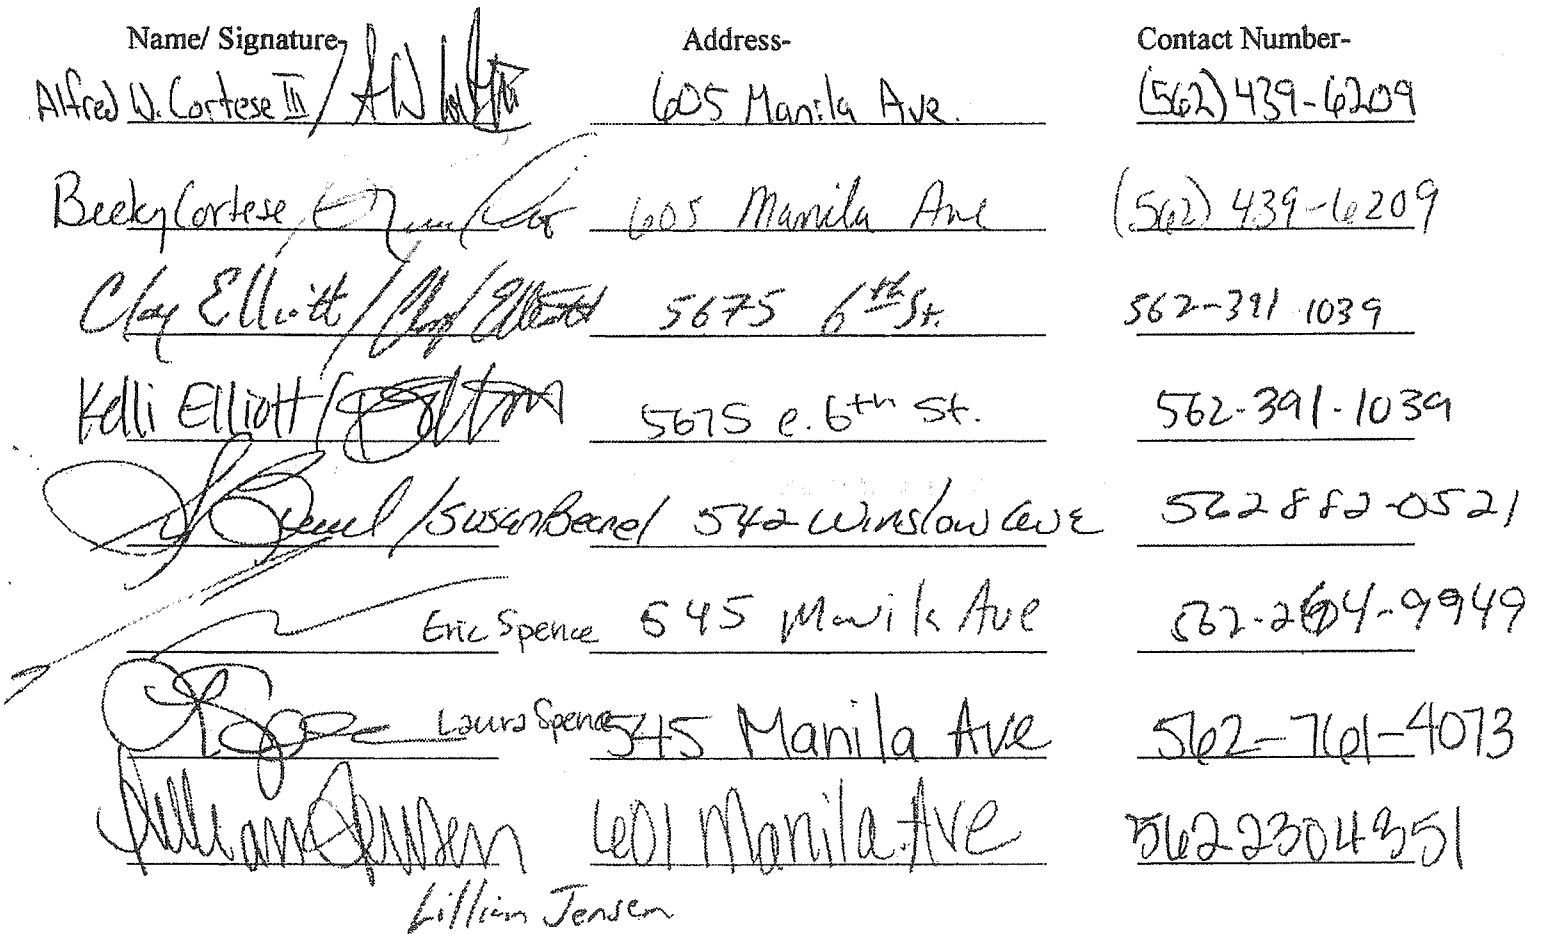 Name/ Signature- Address- Contact Number-
Alfred W. Cortese III / 605 Manila Ave. (562) 439-6209
Becky Cortese / 605 Manila Ave (562) 439-6209
Clay Elliott / Clay Elliott 5675 6th St. 562-391 1039
Kelli Elliott / 5675 e. 6th St. 562-391-1039
/ Susan 542 Winslow Ave 562 882-0521
Eric Spence 545 Manila Ave 562- -9949
Laura Spence 545 Manila Ave 562-761-4073
Lillian Jensen 601 Manila Ave 562 230 4351
Lillian Jensen